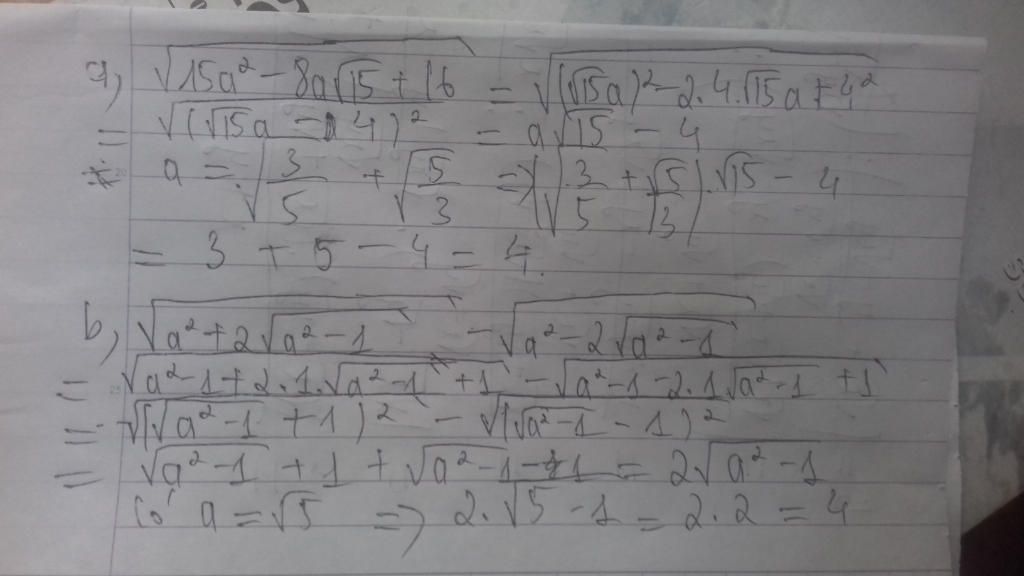 a, √(15a² - 8a√15 + 16) = √((√15a)² - 2.4.√15a + 4²)
= √((√15a - 4)²) = a√15 - 4
* a = √(3/5) + √(5/3) => (√(3/5) + √(5/3)).√15 - 4
= 3 + 5 - 4 = 4.
b, √(a² + 2√(a² - 1)) - √(a² - 2√(a² - 1))
= √(a² - 1 + 2.1.√(a² - 1) + 1) - √(a² - 1 - 2.1√(a² - 1) + 1)
= √((√(a² - 1) + 1)²) - √((√(a² - 1) - 1)²)
= √(a² - 1) + 1 + √(a² - 1) - 1 = 2√(a² - 1)
Có a = √5 => 2.√(5 - 1) = 2.2 = 4